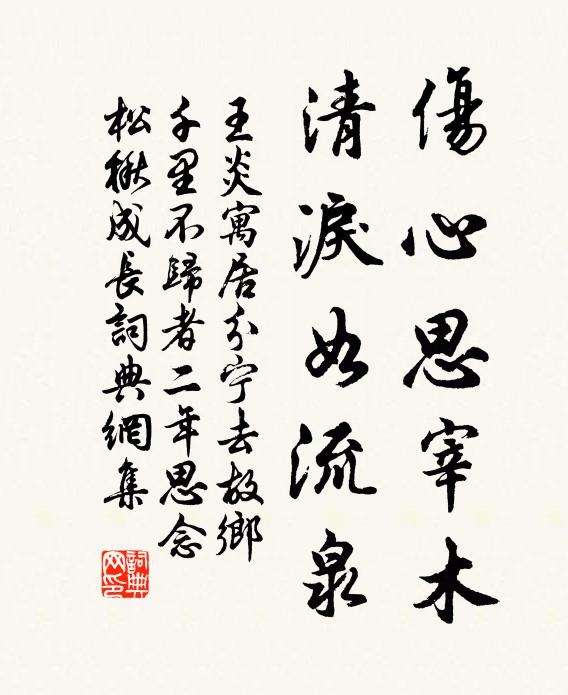 傷心思宰木
清淚如流泉
王炎寓居分宁去故鄉
千里不歸者二年思念
松楸成長詞典網集
詞典网印